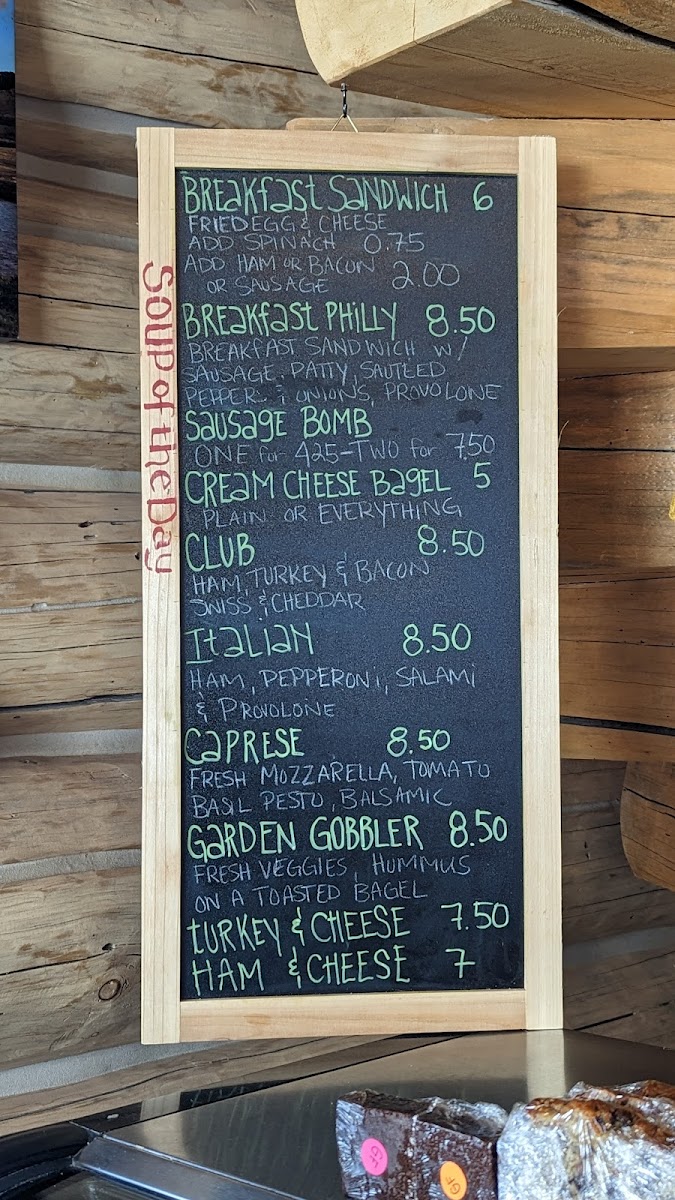 BREAKFAST SANDWICH 6
FRIED EGG & CHEESE
ADD SPINACH 0.75
ADD HAM OR BACON 2.00
OR SAUSAGE
BREAKFAST PHILLY 8.50
BREAKFAST SANDWICH W/
SAUSAGE PATTY, SAUTEED
PEPPER & ONIONS, PROVOLONE
SAUSAGE BOMB
ONE for 425-TWO for 7.50
CREAM CHEESE BAGEL 5
PLAIN OR EVERYTHING
CLUB 8.50
HAM, TURKEY & BACON
SWISS & CHEDDAR
ITALIAN 8.50
HAM, PEPPERONI, SALAMI
& PROVOLONE
CAPRESE 8.50
FRESH MOZZARELLA, TOMATO
BASIL PESTO, BALSAMIC
GARDEN GOBBLER 8.50
FRESH VEGGIES, HUMMUS
ON A TOASTED BAGEL
TURKEY & CHEESE 7.50
HAM & CHEESE 7
Soup of the Day
GF